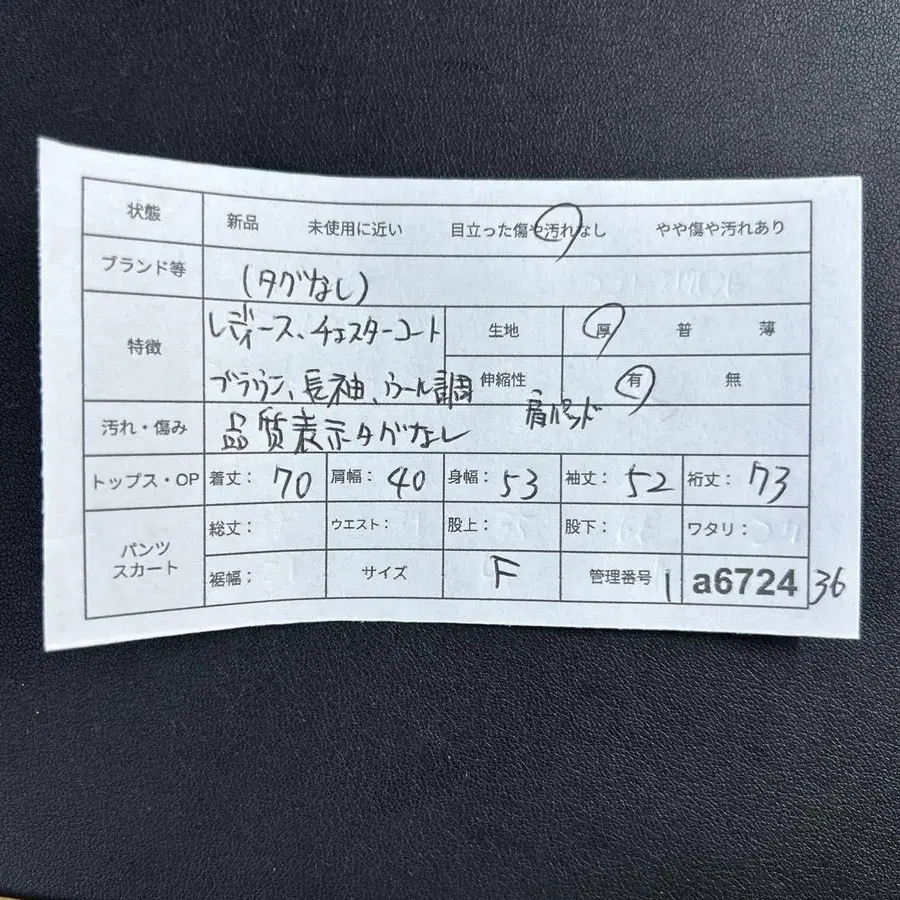 状態 新品 未使用に近い 目立った傷や汚れなし やや傷や汚れあり
ブランド等 (タグなし)
特徴 レディース、チェスターコート 生地 厚 普 薄
ブラウン、長袖、ウール調 伸縮性 有 無
肩パッド
汚れ・傷み 品質表示タグなし
トップス・OP 着丈: 70 肩幅: 40 身幅: 53 袖丈: 52 裄丈: 73
パンツ スカート 総丈: ウエスト: 股上: 股下: ワタリ:
裾幅: サイズ F 管理番号 1 a6724 36